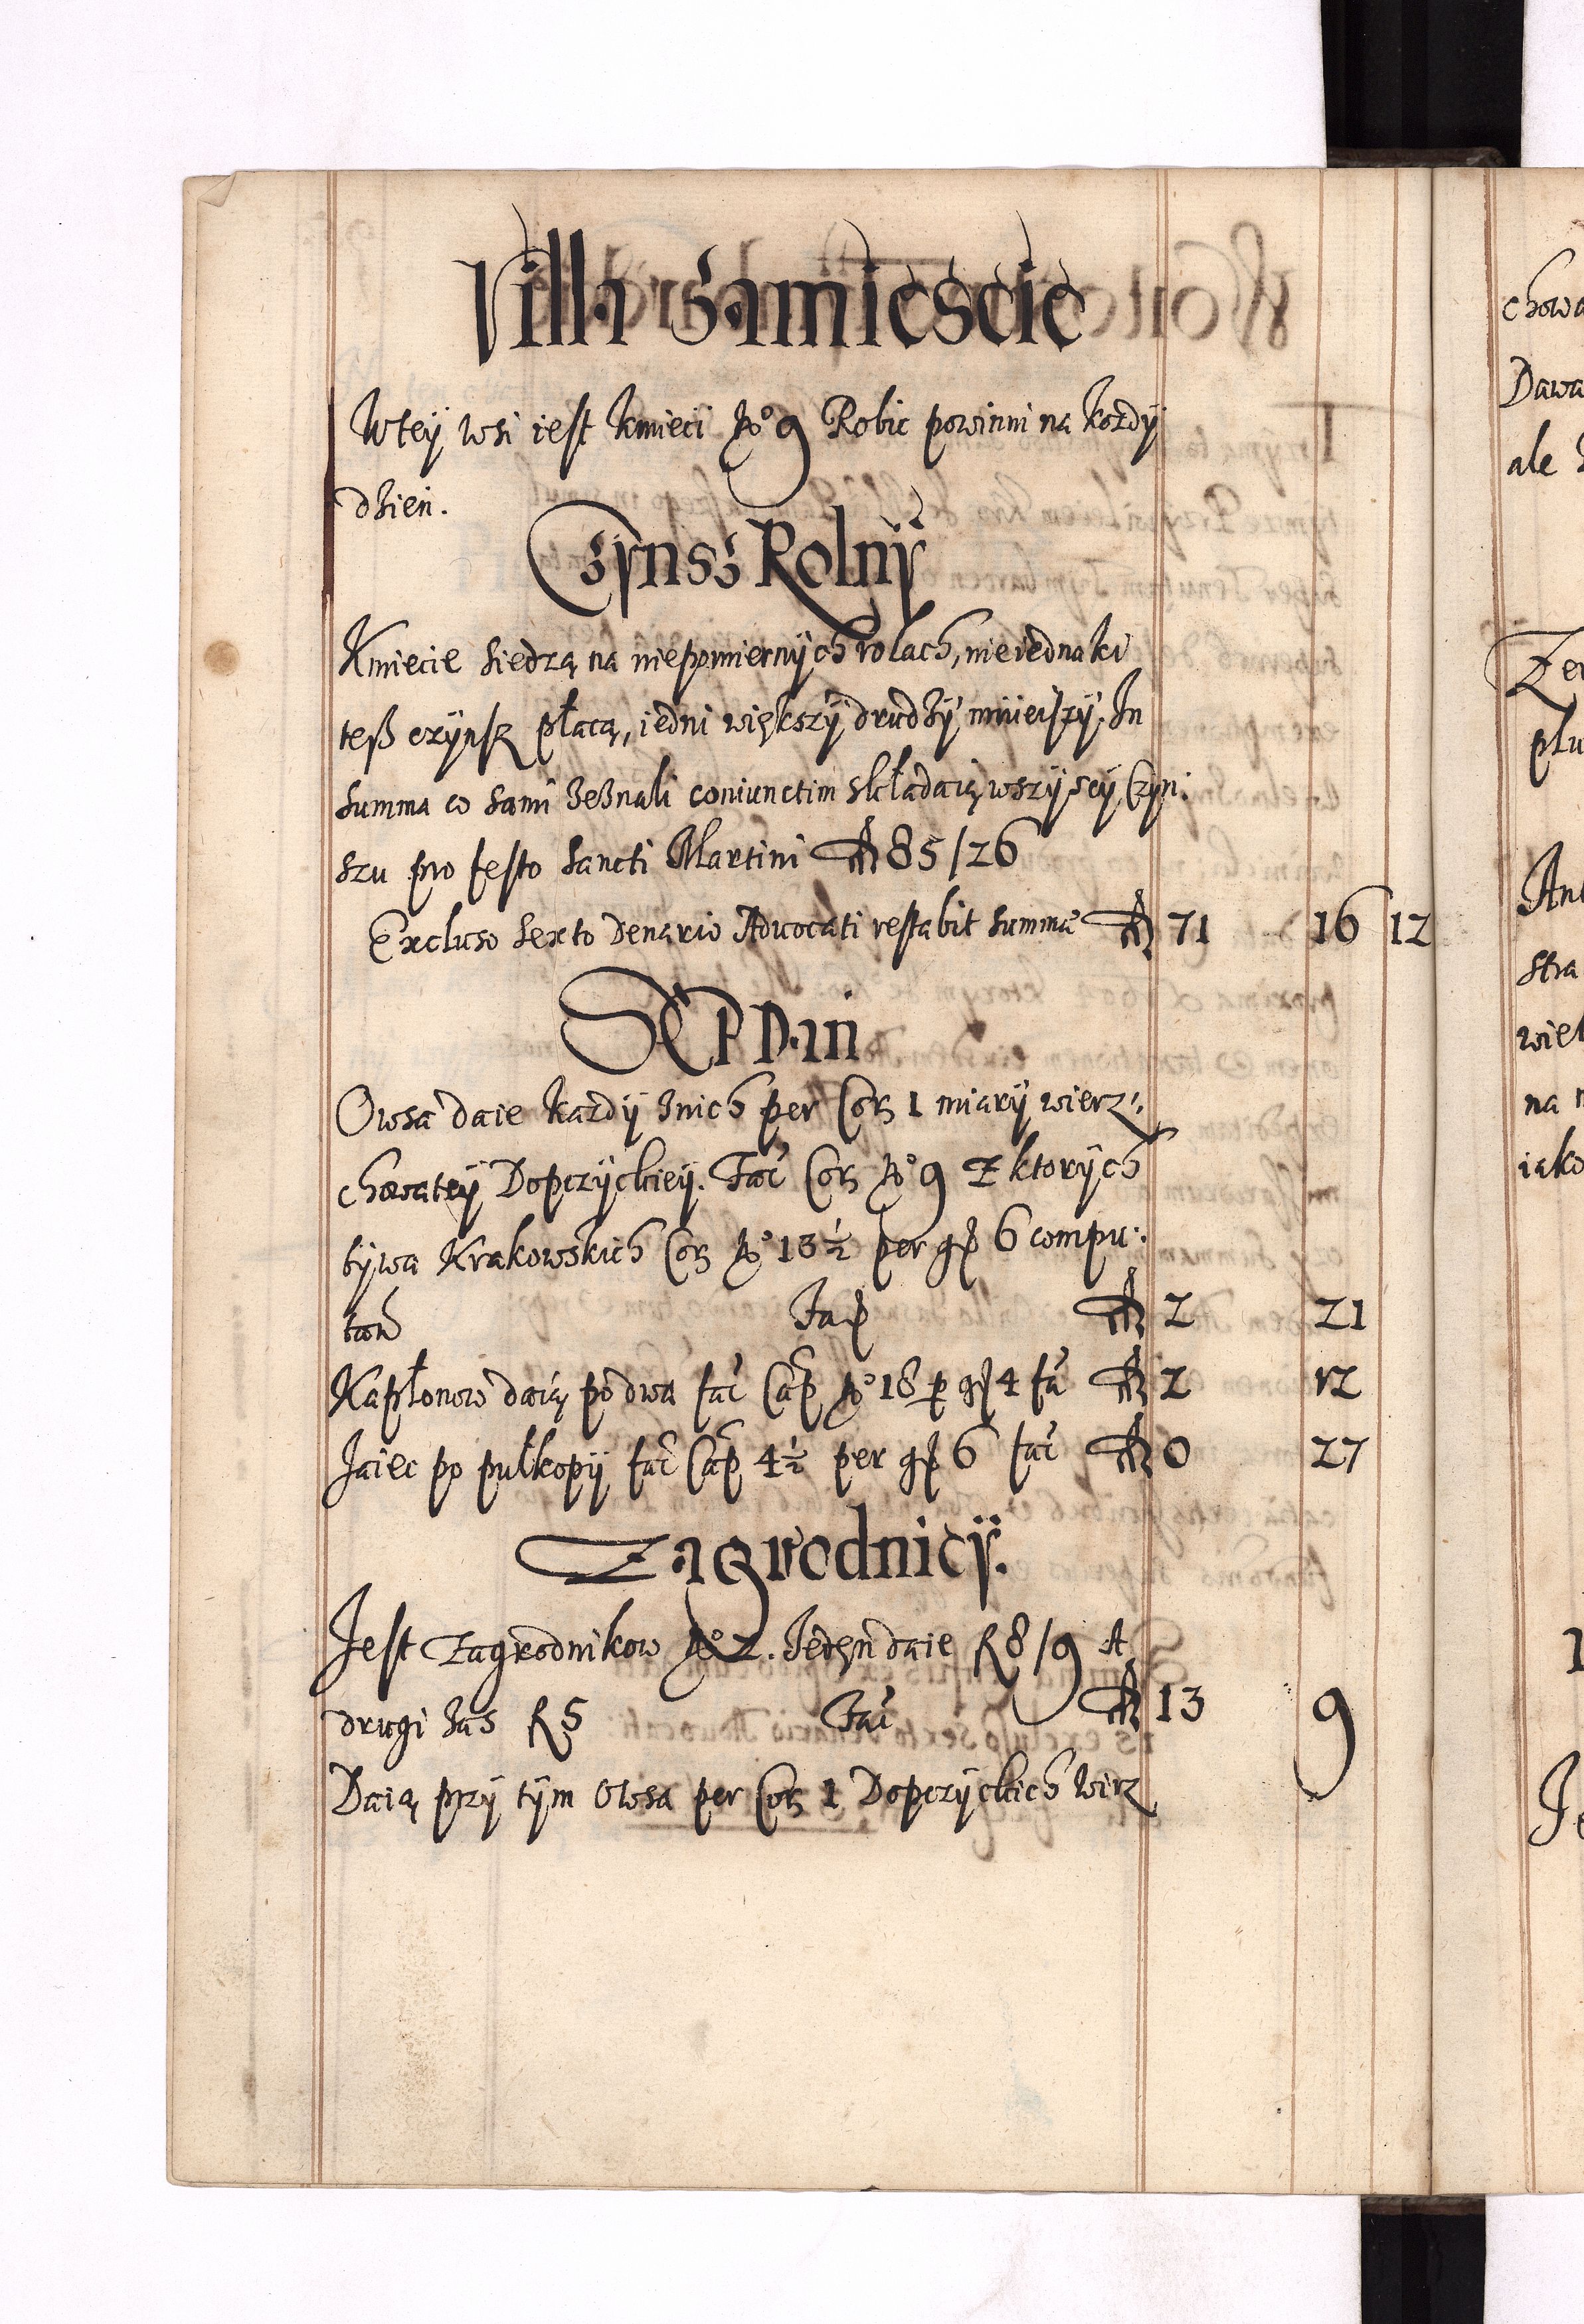 Villa Zamiescie
Wteÿ wsi iest kmieci No 9 Robic powinni na kozdÿ
dzien.
Czÿnsz Rolnÿ
Kmiecie siedzą na niepomiernÿch rolach, nieiednaki
teß czÿnsz płacą, iedni większÿ drudzÿ mnieiszÿ. In
summa co sami zeznali coniunctim składaią wszÿscÿ Czÿn:
szu pro festo Sancti Martini 85/26
Excluso sexto denario Advocati restabit summa 71 16 12
SEPDan
Owsa daie kazdÿ znich per Cor 1 miarÿ wierz:
chowateÿ Dopczÿckieÿ. Fac Cor No 9 Z ktorÿch
bÿwa Krakowskich Cor No 13 ½ per gr 6 compu:
tan Fac 2 21
Kapłonow daią po dwa fac Cap No 18 p gr 4 fa 2 12
Jaiec po pułkopÿ fac Cap 4 ½ per gr 6 fac 0 27
Zagrodnicÿ.
Jest Zagrodnikow No 2. Jeden daie R 8/9 A
drugi zas R 5 Fac 13 9
Daią przÿ tÿm Owsa per Cor 1 Dopczÿckich wirz